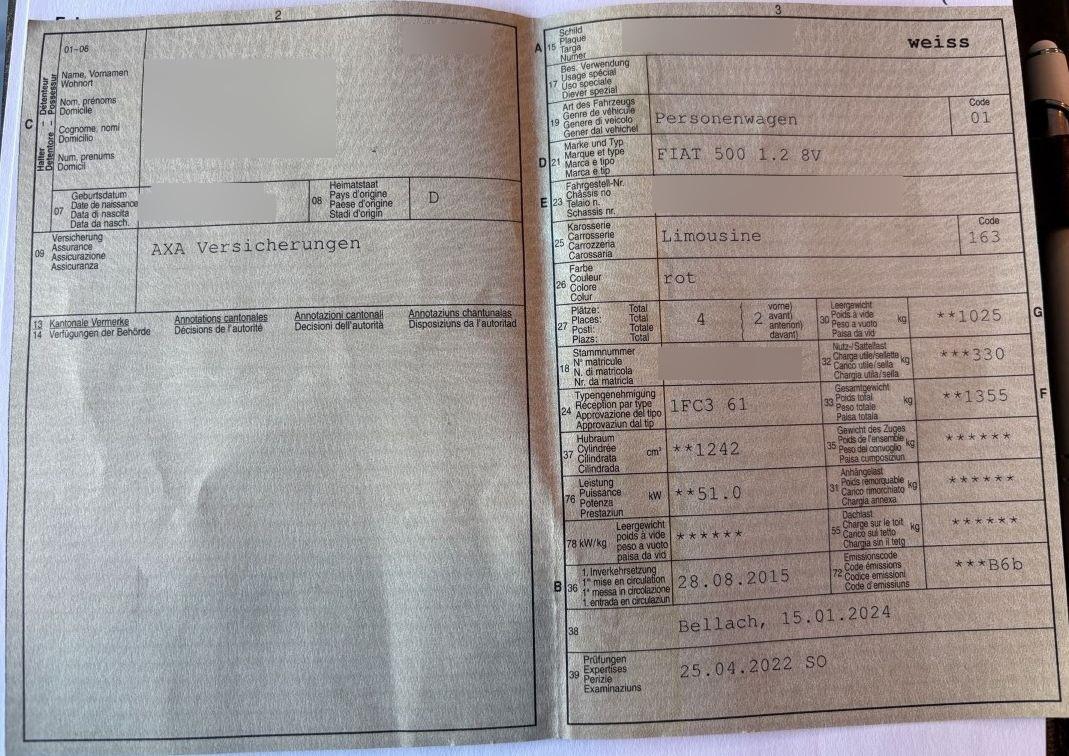 2
01–06
C
Halter – Détenteur
Detentore – Possessur
Name, Vornamen
Wohnort
Nom, prénoms
Domicile
Cognome, nomi
Domicilio
Num, prenums
Domicil
07
Geburtsdatum
Date de naissance
Data di nascita
Data da nasch.
08
Heimatstaat
Pays d'origine
Paese d'origine
Stadi d'origin
D
09
Versicherung
Assurance
Assicurazione
Assicuranza
AXA Versicherungen
13 Kantonale Vermerke Annotations cantonales Annotazioni cantonali Annotaziuns chantunalas
14 Verfügungen der Behörde Décisions de l'autorité Decisioni dell'autorità Disposiziuns da l'autoritad
3
A 15
Schild
Plaque
Targa
Numer
weiss
17
Bes. Verwendung
Usage spécial
Uso speciale
Diever spezial
19
Art des Fahrzeugs
Genre de véhicule
Genere di veicolo
Gener dal vehichel
Personenwagen
Code
01
D 21
Marke und Typ
Marque et type
Marca e tipo
Marca e tip
FIAT 500 1.2 8V
E 23
Fahrgestell-Nr.
Châssis no
Telaio n.
Schassis nr.
25
Karosserie
Carrosserie
Carrozzeria
Carossaria
Limousine
Code
163
26
Farbe
Couleur
Colore
Colur
rot
27
Plätze: Total
Places: Total
Posti: Totale
Plazs: Total
4
2
vorne)
avant)
anteriori)
davant)
30
Leergewicht
Poids à vide
Peso a vuoto
Paisa da vid
kg
**1025
G
18
Stammnummer
N° matricule
N. di matricola
Nr. da matricla
32
Nutz-/Sattellast
Charge utile/sellette
Carico utile/sella
Chargia utila/sella
kg
***330
24
Typengenehmigung
Réception par type
Approvazione del tipo
Approvaziun dal tip
1FC3 61
33
Gesamtgewicht
Poids total
Peso totale
Paisa totala
kg
**1355
F
37
Hubraum
Cylindrée
Cilindrata
Cilindrada
cm³
**1242
35
Gewicht des Zuges
Poids de l'ensemble
Peso del convoglio
Paisa cumposiziun
kg
******
76
Leistung
Puissance
Potenza
Prestaziun
kW
**51.0
31
Anhängelast
Poids remorquable
Carico rimorchiato
Chargia annexa
kg
******
78 kW/kg
Leergewicht
poids à vide
peso a vuoto
paisa da vid
******
55
Dachlast
Charge sur le toit
Carico sul tetto
Chargia sin il tetg
kg
******
B 36
1. Inverkehrsetzung
1re mise en circulation
1a messa in circolazione
1. entrada en circulaziun
28.08.2015
72
Emissionscode
Code émissions
Codice emissioni
Code d'emissiuns
***B6b
38
Bellach, 15.01.2024
39
Prüfungen
Expertises
Perizie
Examinaziuns
25.04.2022 SO